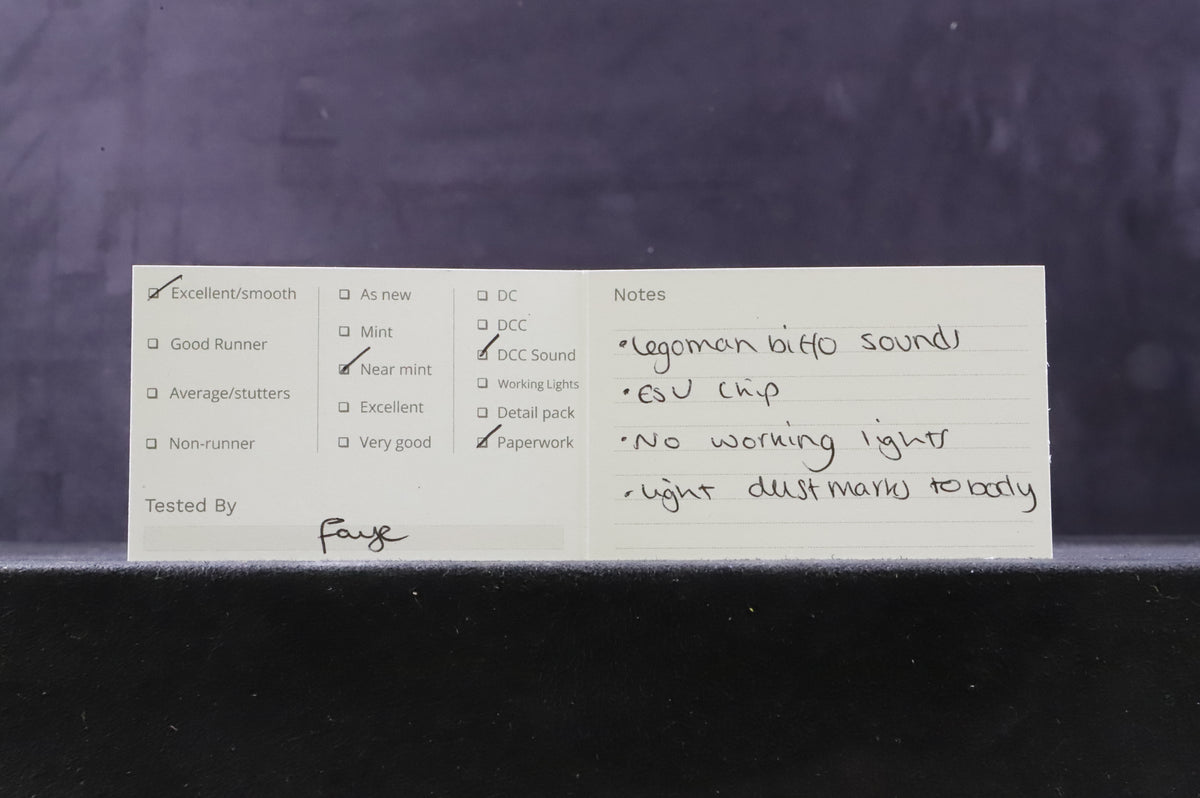 Excellent/smooth
Good Runner
Average/stutters
Non-runner
As new
Mint
Near mint
Excellent
Very good
DC
DCC
DCC Sound
Working Lights
Detail pack
Paperwork
Tested By
Faye
Notes
• Legoman biffo sounds
• ESU Chip
• No working lights
• light dust marks to body